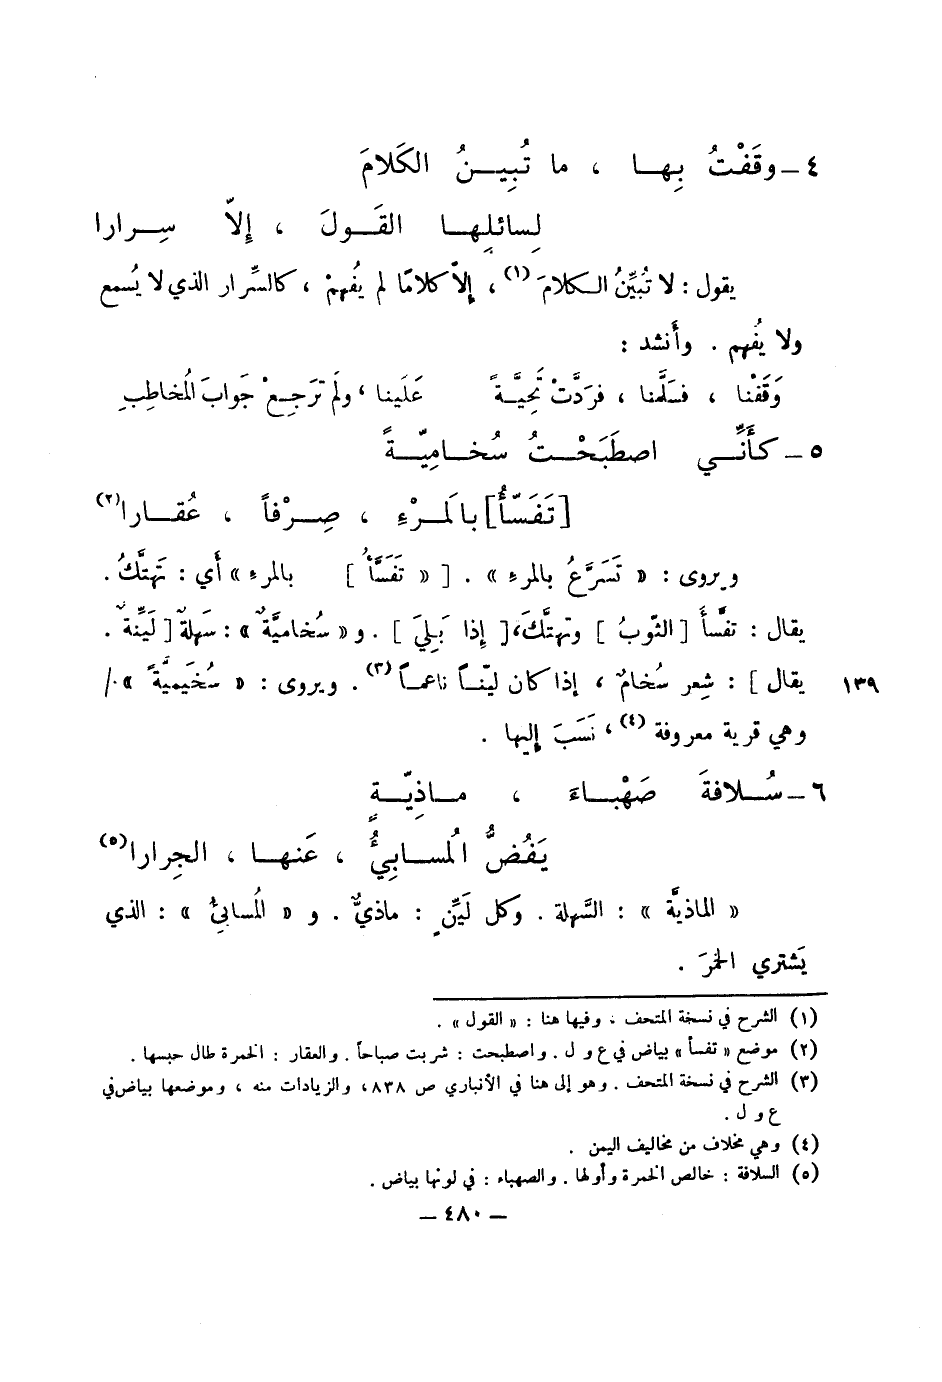 ٤ – وقَفْتُ بِهـا ، ما تُبِيـنُ الكَلامَ
لِسائلِهـا القَـولَ ، إلاّ سِـرارا
يقول : لا تُبيِّنُ الكلامَ (١) ، إلاّ كلامًا لم يُفهمْ ، كالسِّرار الذي لا يُسمع
ولا يُفهم . وأَنشد :
وَقَفْنا ، فسَلَّمنا ، فرَدَّتْ تَحِيَّـةً عَلَينا ، ولَم تَرجِـعْ جَوابَ المُخاطِبِ
٥ – كـأَنِّـي اصطَبَحْـتُ سُخـامِيّـةً
[تَفَسّأُ] بالمَـرْءِ ، صِـرْفاً ، عُقـارا (٢)
ويروى : « تَسَرَّعُ بالمرءِ » . [ « تَفَسَّأُ ] بالمرءِ » أَي : تَهتَّكُ .
يقال : تفسَّأَ [ الثّوبُ ] وتهتَّكَ، [ إذا بَلِيَ ] . و « سُخاميَّةٌ » : سَهلةٌ [ لَيِّنةٌ .
١٣٩ يقال ] : شِعر سُخامٌ ، إذا كان ليّنـاً ناعمـاً (٣) . ويروى : « سُخَيميَّةً » . /
وهي قرية معروفة (٤) ، نَسَبَ إليها .
٦ – سُـلافةَ صَهْبـاءَ ، مـاذِيّـةٍ
يَفُضُّ المُسـابِئُ ، عَنهـا ، الجِرارا (٥)
« الماذيَّة » : السَّهلة . وكل لَيِّنٍ : ماذيٌّ . و « المُسابئُ » : الذي
يَشتري الخمرَ .
(١) الشرح في نسخة المتحف ، وفيها هنا : « القول » .
(٢) موضع « تفسأ » بياض في ع و ل . واصطبحت : شربت صباحاً . والعقار : الخمرة طال حبسها .
(٣) الشرح في نسخة المتحف . وهو إلى هنا في الأنباري ص ٨٣٨ ، والزيادات منه ، وموضعها بياض في
ع و ل .
(٤) وهي مخلاف من مخاليف اليمن .
(٥) السلافة : خالص الخمرة وأولها . والصهباء : في لونها بياض .
– ٤٨٠ –